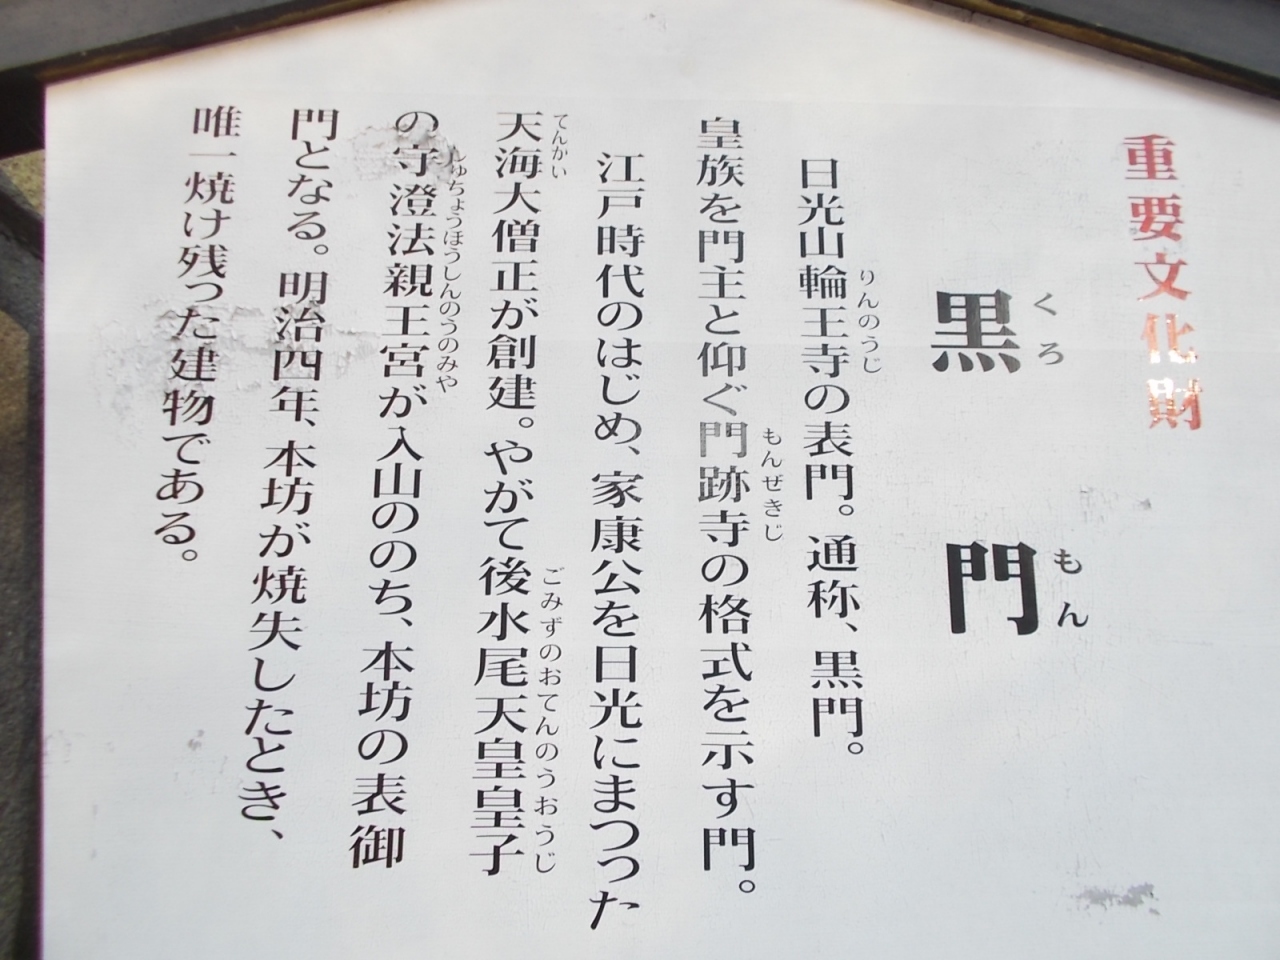 重要文化財
黒門
くろもん
日光山輪王寺の表門。通称、黒門。
りんのうじ
皇族を門主と仰ぐ門跡寺の格式を示す門。
もんぜきじ
江戸時代のはじめ、家康公を日光にまつった
天海大僧正が創建。やがて後水尾天皇皇子
てんかい
ごみずのおてんのうおうじ
の守澄法親王宮が入山ののち、本坊の表御
しゅちょうほうしんのうのみや
門となる。明治四年、本坊が焼失したとき、
唯一焼け残った建物である。